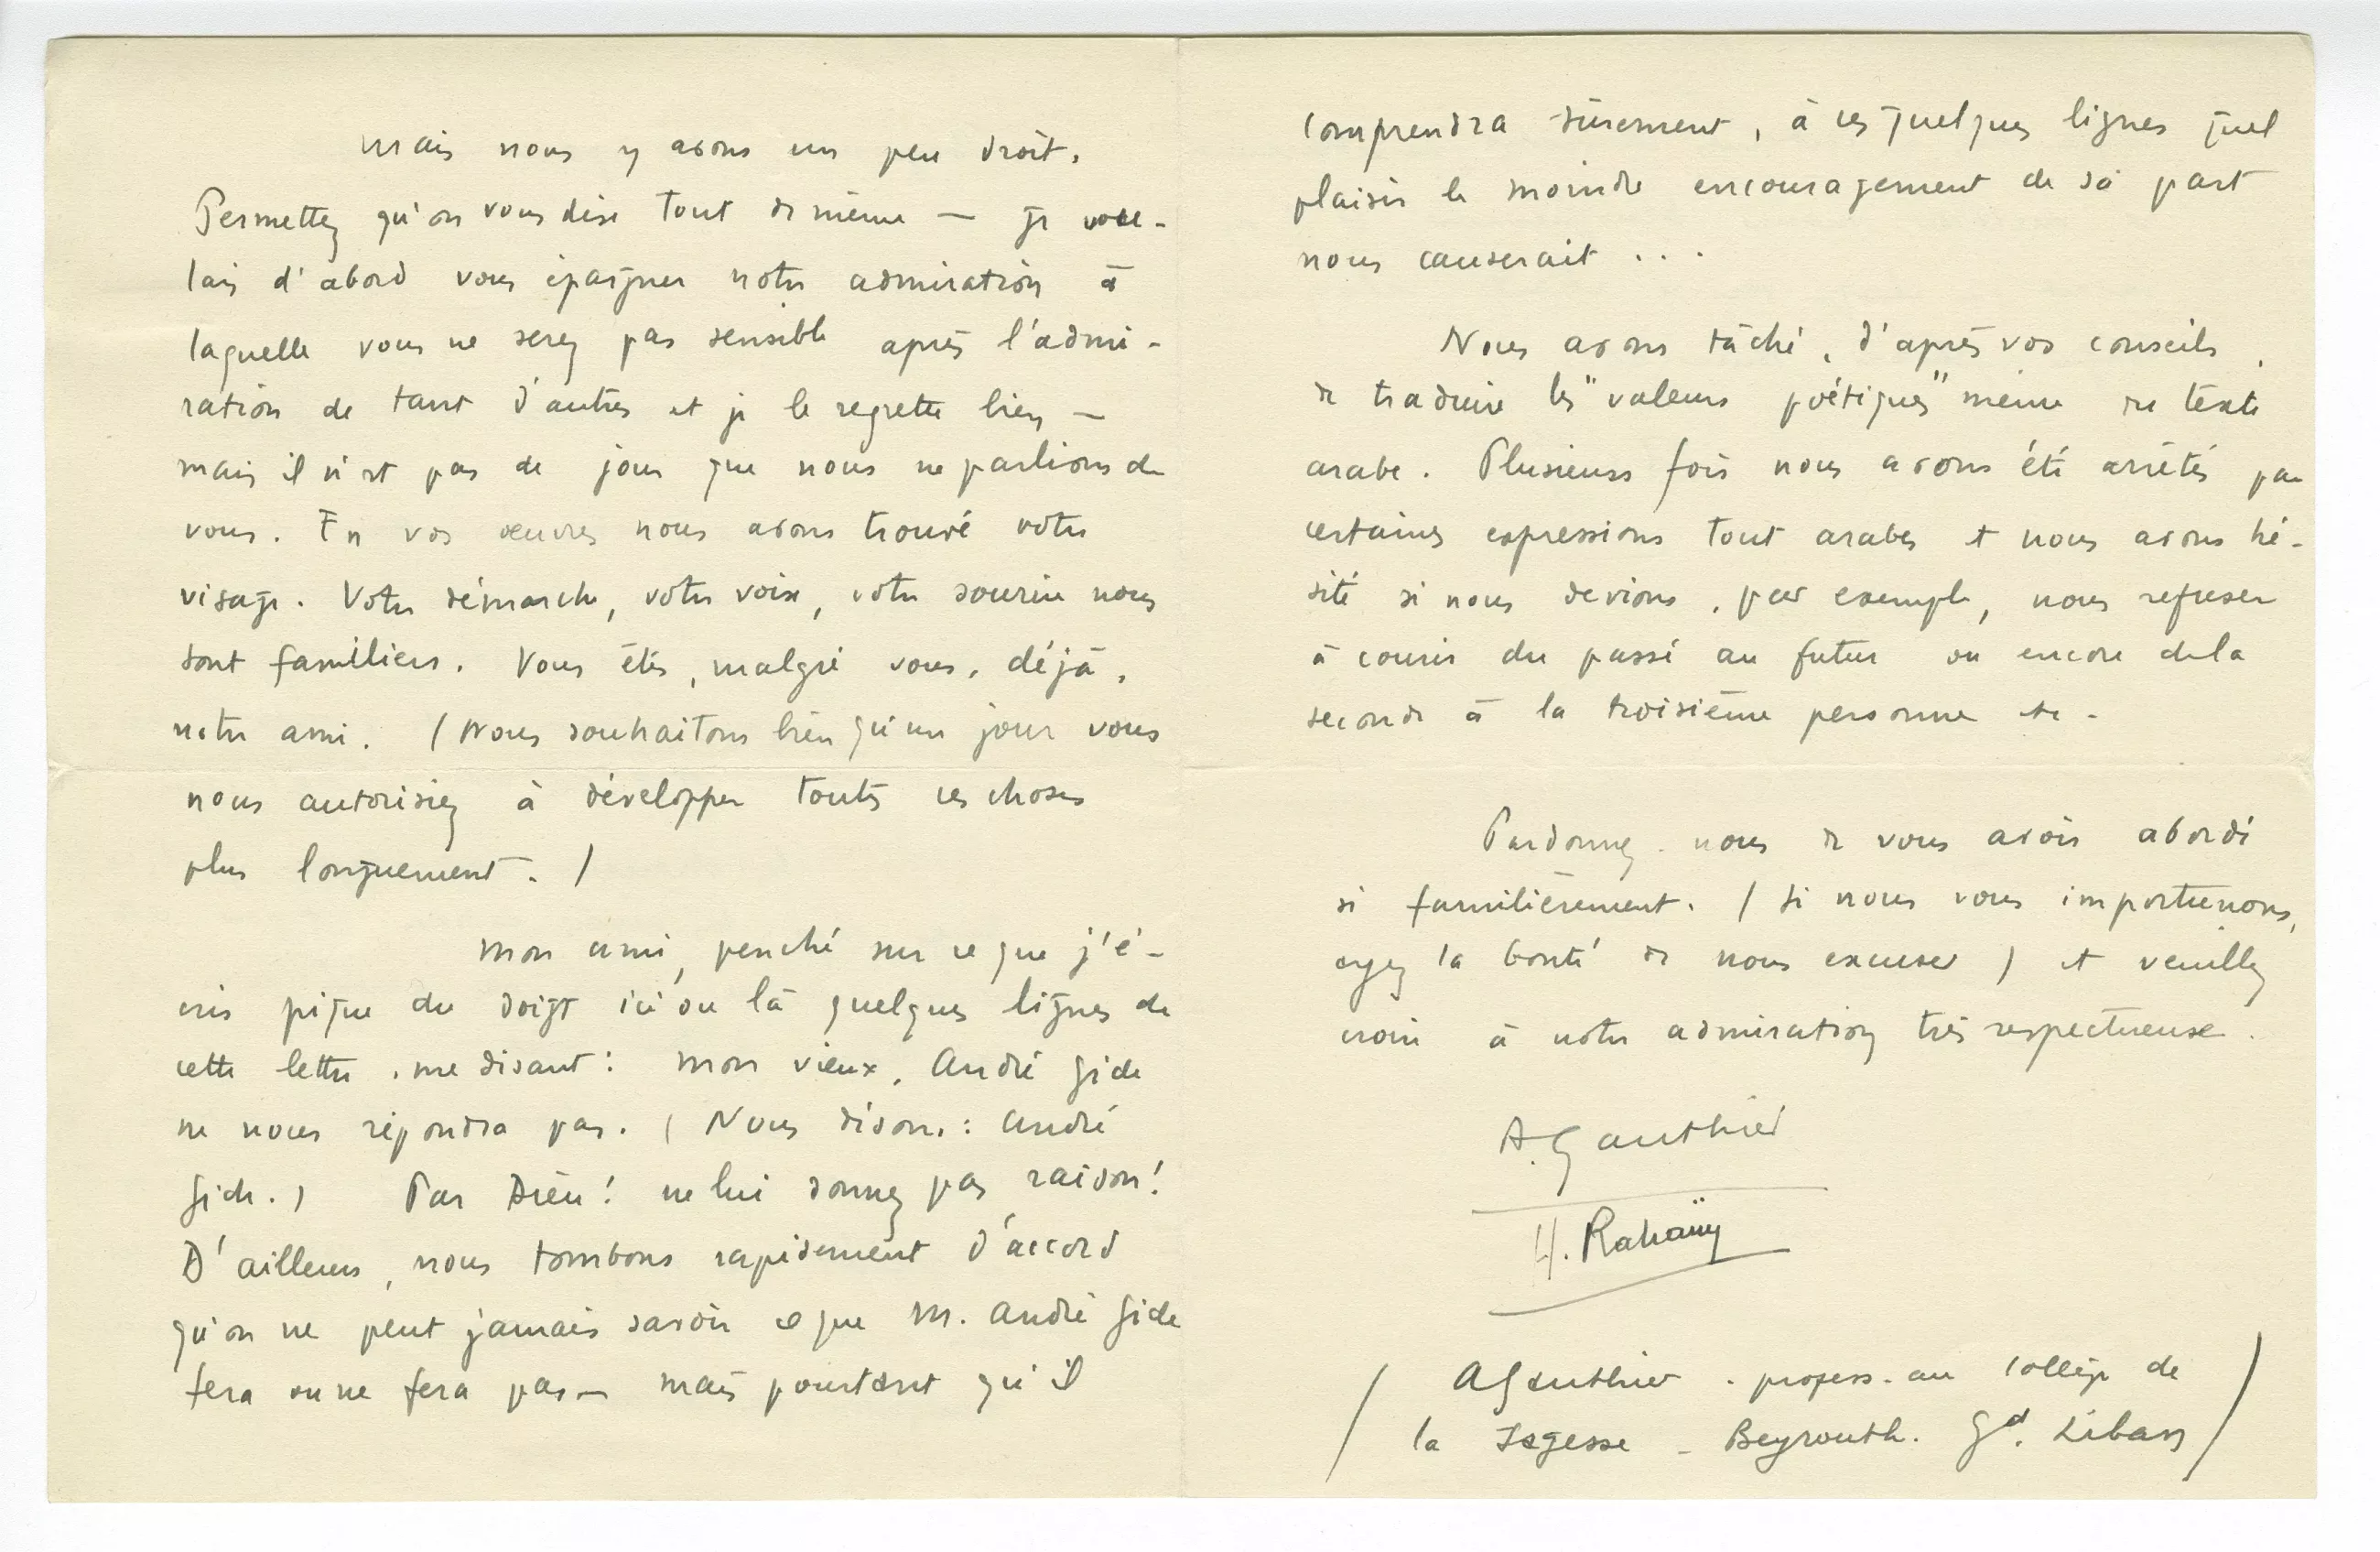 mais nous y avons un peu droit.
Permettez qu'on vous dise tout de même — je vou-
lais d'abord vous épargner notre admiration à
laquelle vous ne serez pas sensible après l'admi-
ration de tant d'autres et je le regrette bien —
mais il n'est pas de jour que nous ne parlions de
vous. En vos œuvres nous avons trouvé votre
visage. Votre démarche, votre voix, votre sourire nous
sont familiers. Vous êtes, malgré vous, déjà,
notre ami. (Nous souhaitons bien qu'un jour vous
nous autorisiez à développer toutes ces choses
plus longuement.)
Mon ami, penché sur ce que j'é-
cris pique du doigt ici ou là quelques lignes de
cette lettre, me disant : mon vieux, André Gide
ne nous répondra pas. (Nous disons : André
Gide.) Par Dieu! ne lui donnez pas raison!
D'ailleurs, nous tombons rapidement d'accord
qu'on ne peut jamais savoir ce que M. André Gide
fera ou ne fera pas — mais pourtant qu'il
comprendra sûrement, à ces quelques lignes quel
plaisir le moindre encouragement de sa part
nous causerait ...
Nous avons tâché, d'après vos conseils,
de traduire les "valeurs poétiques" même du texte
arabe. Plusieurs fois nous avons été arrêtés par
certaines expressions tout arabes et nous avons hé-
sité si nous devions, par exemple, nous refuser
à courir du passé au futur ou encore de la
seconde à la troisième personne etc.
Pardonnez-nous de vous avoir abordé
si familièrement. (Si nous vous importunons,
ayez la bonté de nous excuser) et veuillez
croire à notre admiration très respectueuse.
A. Gauthier
H. Rahaÿy
(A Gauthier - profess. au Collège de
la Sagesse - Beyrouth. Gd. Liban)